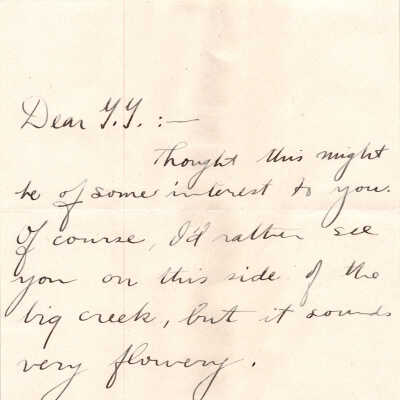 Dear Y.Y. :—
Thought this might
be of some interest to you.
Of course, I'd rather see
you on this side of the
big creek, but it sounds
very flowery.